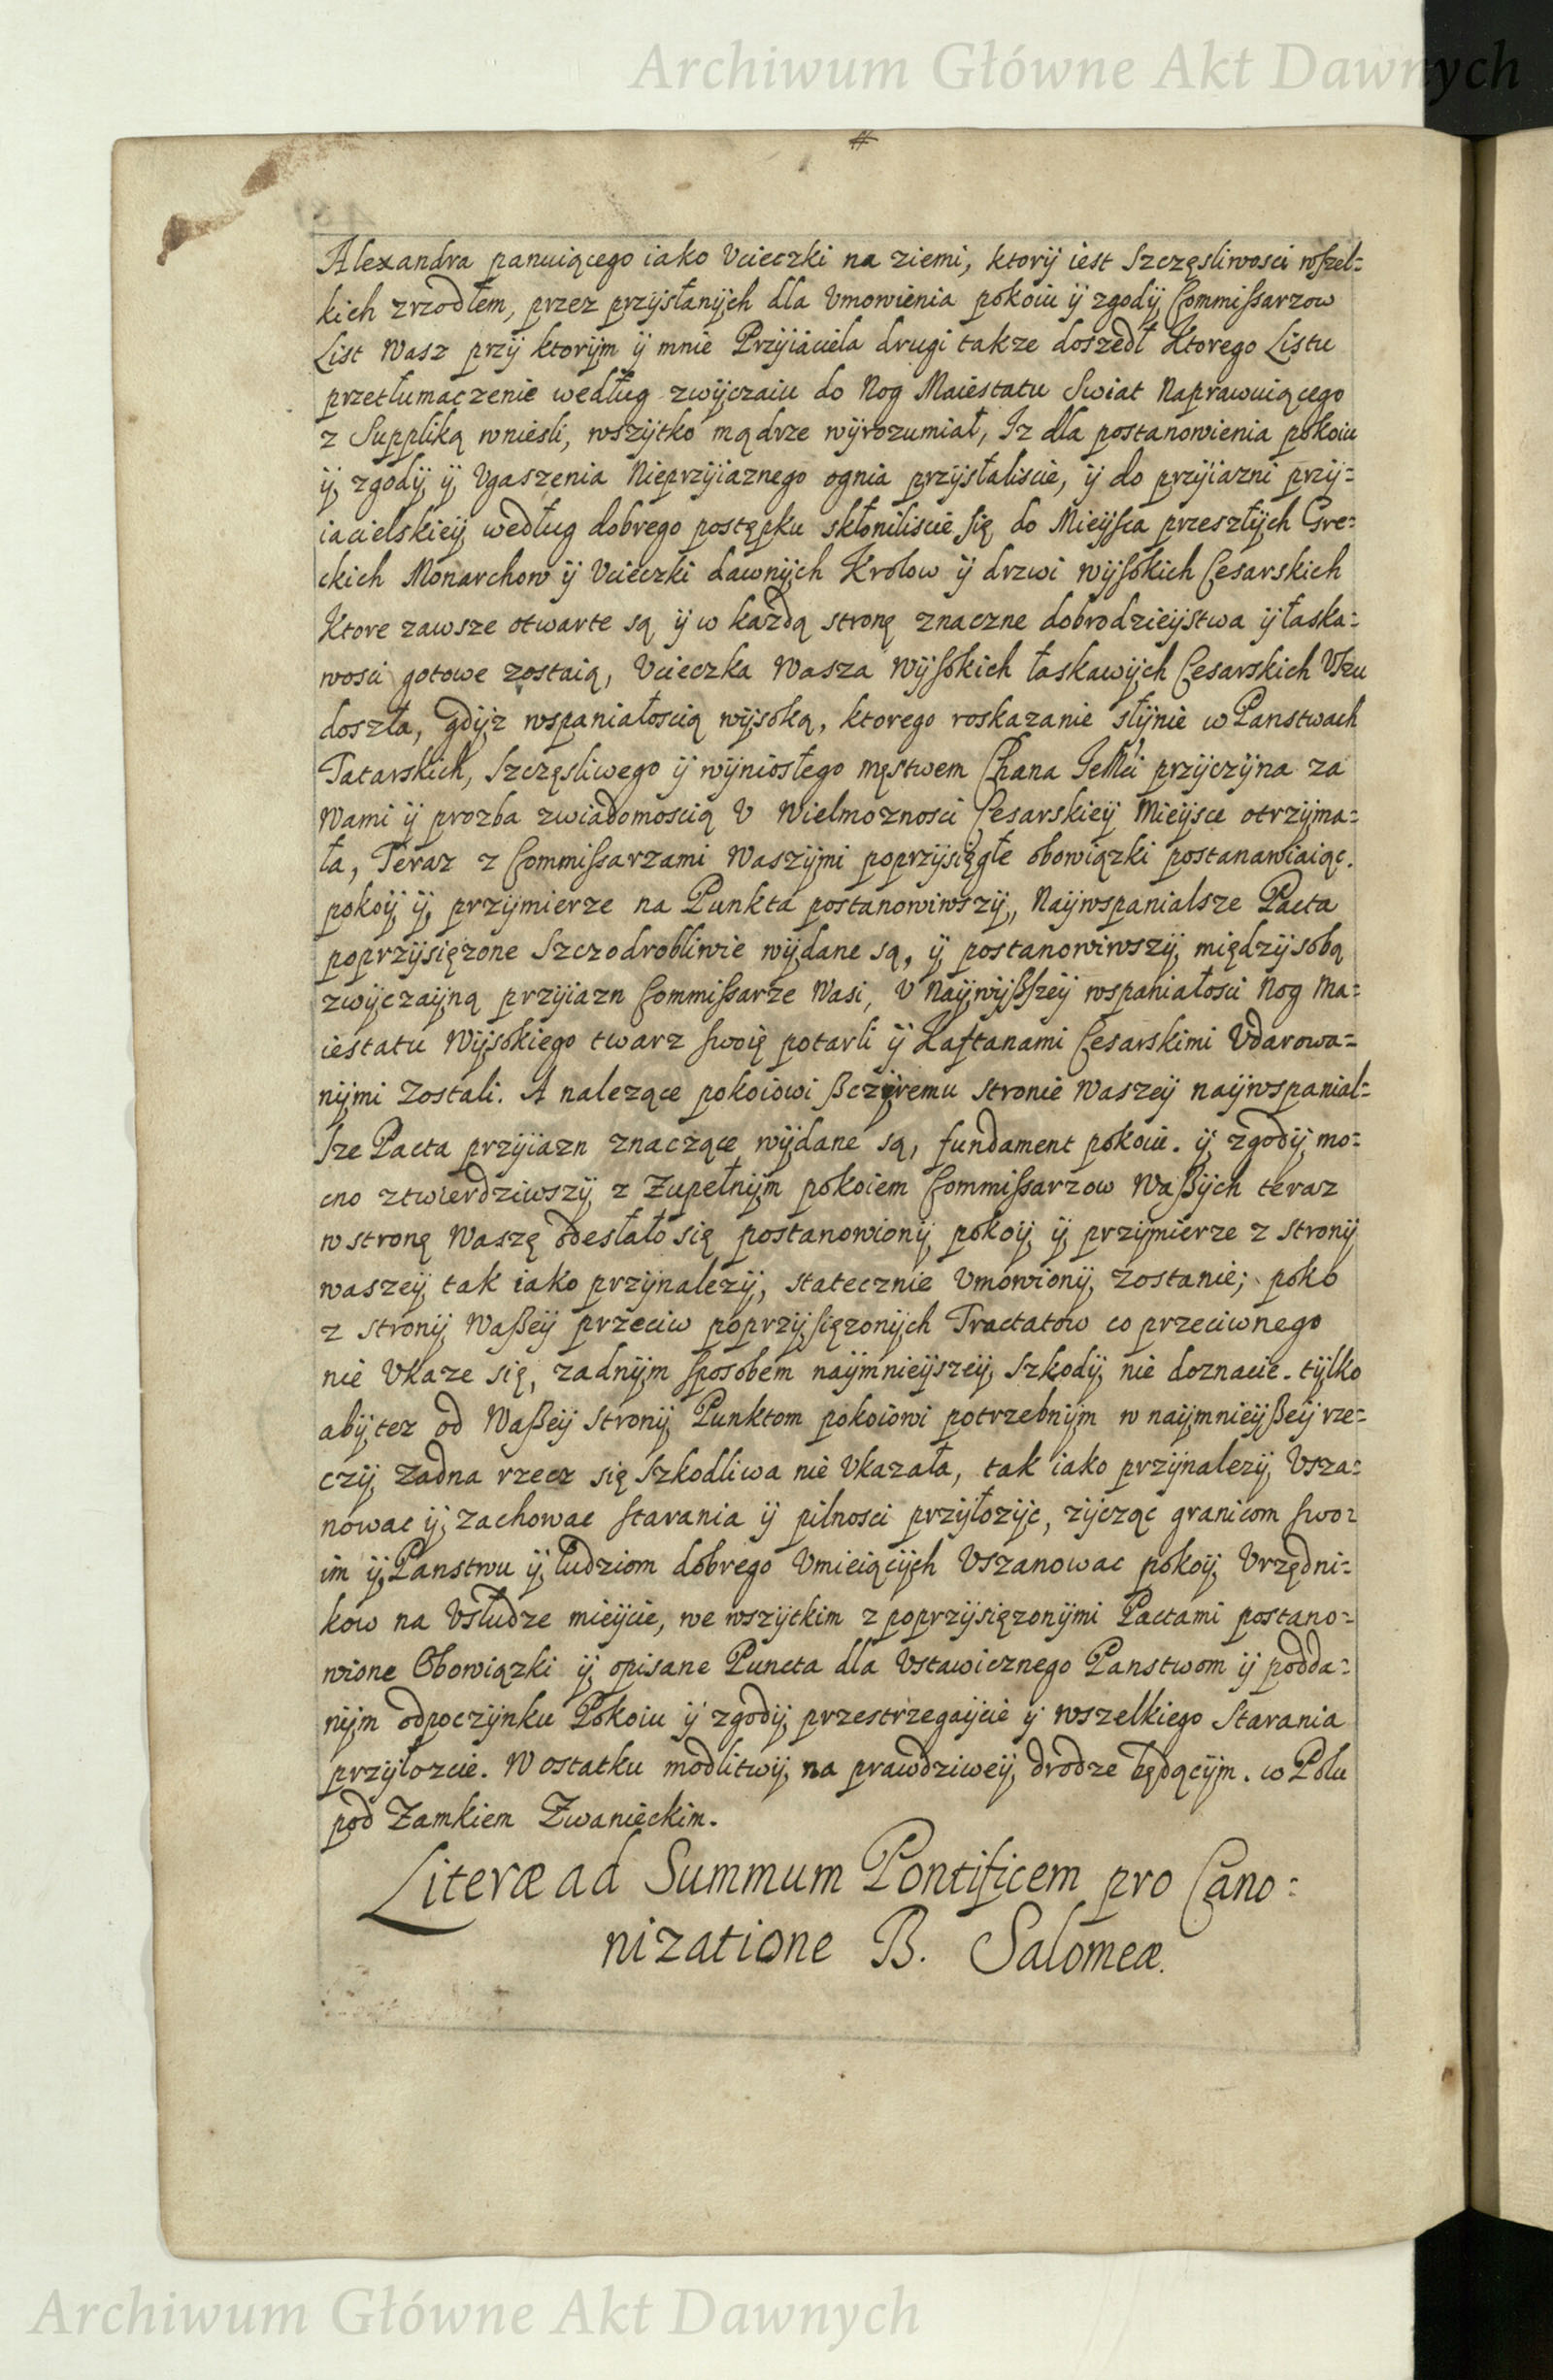 Archiwum Główne Akt Dawnych
#
Alexandra panuiącego iako Vcieczki na ziemi, ktorÿ iest Szczęsliwosci wszel=
kich zrzodłem, przez przÿsłanÿch dla Vmowienia pokoiu ÿ zgodÿ Commissarzow
List Wasz przÿ ktorÿm ÿ mnie Przÿiaciela drugi takze doszedł Ktorego Listu
przetłumaczenie według zwÿczaiu do Nog Maiestatu Swiat Naprawuiącego
z Suppliką wniesli, wszÿtko mądrze wÿrozumiał, Iz dla postanowienia pokoiu
ÿ zgodÿ ÿ Vgaszenia Nieprzÿiaznego ognia przÿsłaliscie, ÿ do przÿiazni przÿ=
iacielskieÿ według dobrego postępku skłoniliscie się do Mieÿsca przeszłÿch Gre=
ckich Monarchow ÿ Vcieczki dawnÿch Krolow ÿ drzwi wÿsokich Cesarskich
Ktore zawsze otwarte są ÿ w każdą stronę znaczne dobrodzieÿstwa ÿ łaska=
wosci gotowe zostaią, Vcieczka Wasza Wÿsokich łaskawÿch Cesarskich Vszu
doszła, gdÿz wspaniałoscią wÿsoką, ktorego roskazanie słÿnie w Panstwach
Tatarskich, Szczęsliwego ÿ wÿniosłego męstwem Chana JeMci przÿczÿna za
Wami ÿ prozba zwiadomoscią V Wielmoznosci Cesarskieÿ Mieÿsce otrzÿma=
ła, Teraz z Commissarzami Waszÿmi poprzÿsięgłe obowiązki postanawiaiąc.
pokoÿ ÿ przÿmierze na Punkta postanowiwszÿ, Naÿwspanialsze Pacta
poprzÿsięzone Szczodrobliwie wÿdane są, ÿ postanowiwszÿ międzÿ sobą
zwÿczaÿną przÿiazn Commissarze Wasi, V Naÿwÿßszeÿ wspaniałosci Nog Ma=
iestatu Wÿsokiego twarz swoię potarli ÿ Kaftanami Cesarskimi Vdarowa=
nÿmi Zostali. A nalezące pokoiowi ßczÿremu stronie Waszeÿ naÿwspanial=
sze Pacta przÿiazn znaczące wÿdane są, fundament pokoiu. ÿ zgodÿ mo=
cno ztwierdziwszÿ z Zupełnÿm pokoiem Commissarzow Waßÿch teraz
w stronę Waszę odesłało się postanowionÿ pokoÿ ÿ przÿmierze z stronÿ
waszeÿ tak iako przÿnalezÿ, statecznie Vmowionÿ zostanie; poko
z stronÿ Waßeÿ przeciw poprzÿsięzonÿch Tractatow co przeciwnego
nie Vkaze się, zadnÿm sposobem naÿmnieÿszeÿ Szkodÿ nie doznacie. tÿlko
abÿ tez od Waßeÿ stronÿ Punktom pokoiowi potrzebnÿm w naÿmnieÿßeÿ rze=
czÿ Zadna rzecz się Szkodliwa nie Vkazała, tak iako przÿnalezÿ Vsza=
nowac ÿ zachowac starania ÿ pilnosci przÿłozÿc, zÿcząc granicom swo=
im ÿ Panstwu ÿ ludziom dobrego Vmieiącÿch Vszanowac pokoÿ Vrzędni=
kow na Vsłudze mieÿcie, we wszÿtkim z poprzÿsięzonÿmi Pactami postano=
wione Obowiązki ÿ opisane Puncta dla Vstawicznego Panstwom ÿ podda=
nÿm odpoczÿnku Pokoiu ÿ zgodÿ przestrzegaÿcie ÿ wszelkiego Starania
przÿłozcie. W ostatku modlitwÿ na prawdziweÿ drodze będącÿm. w Polu
pod Zamkiem Zwanieckim.
Literæ ad Summum Pontificem pro Cano=
nizatione B. Salomeæ.
Archiwum Główne Akt Dawnych